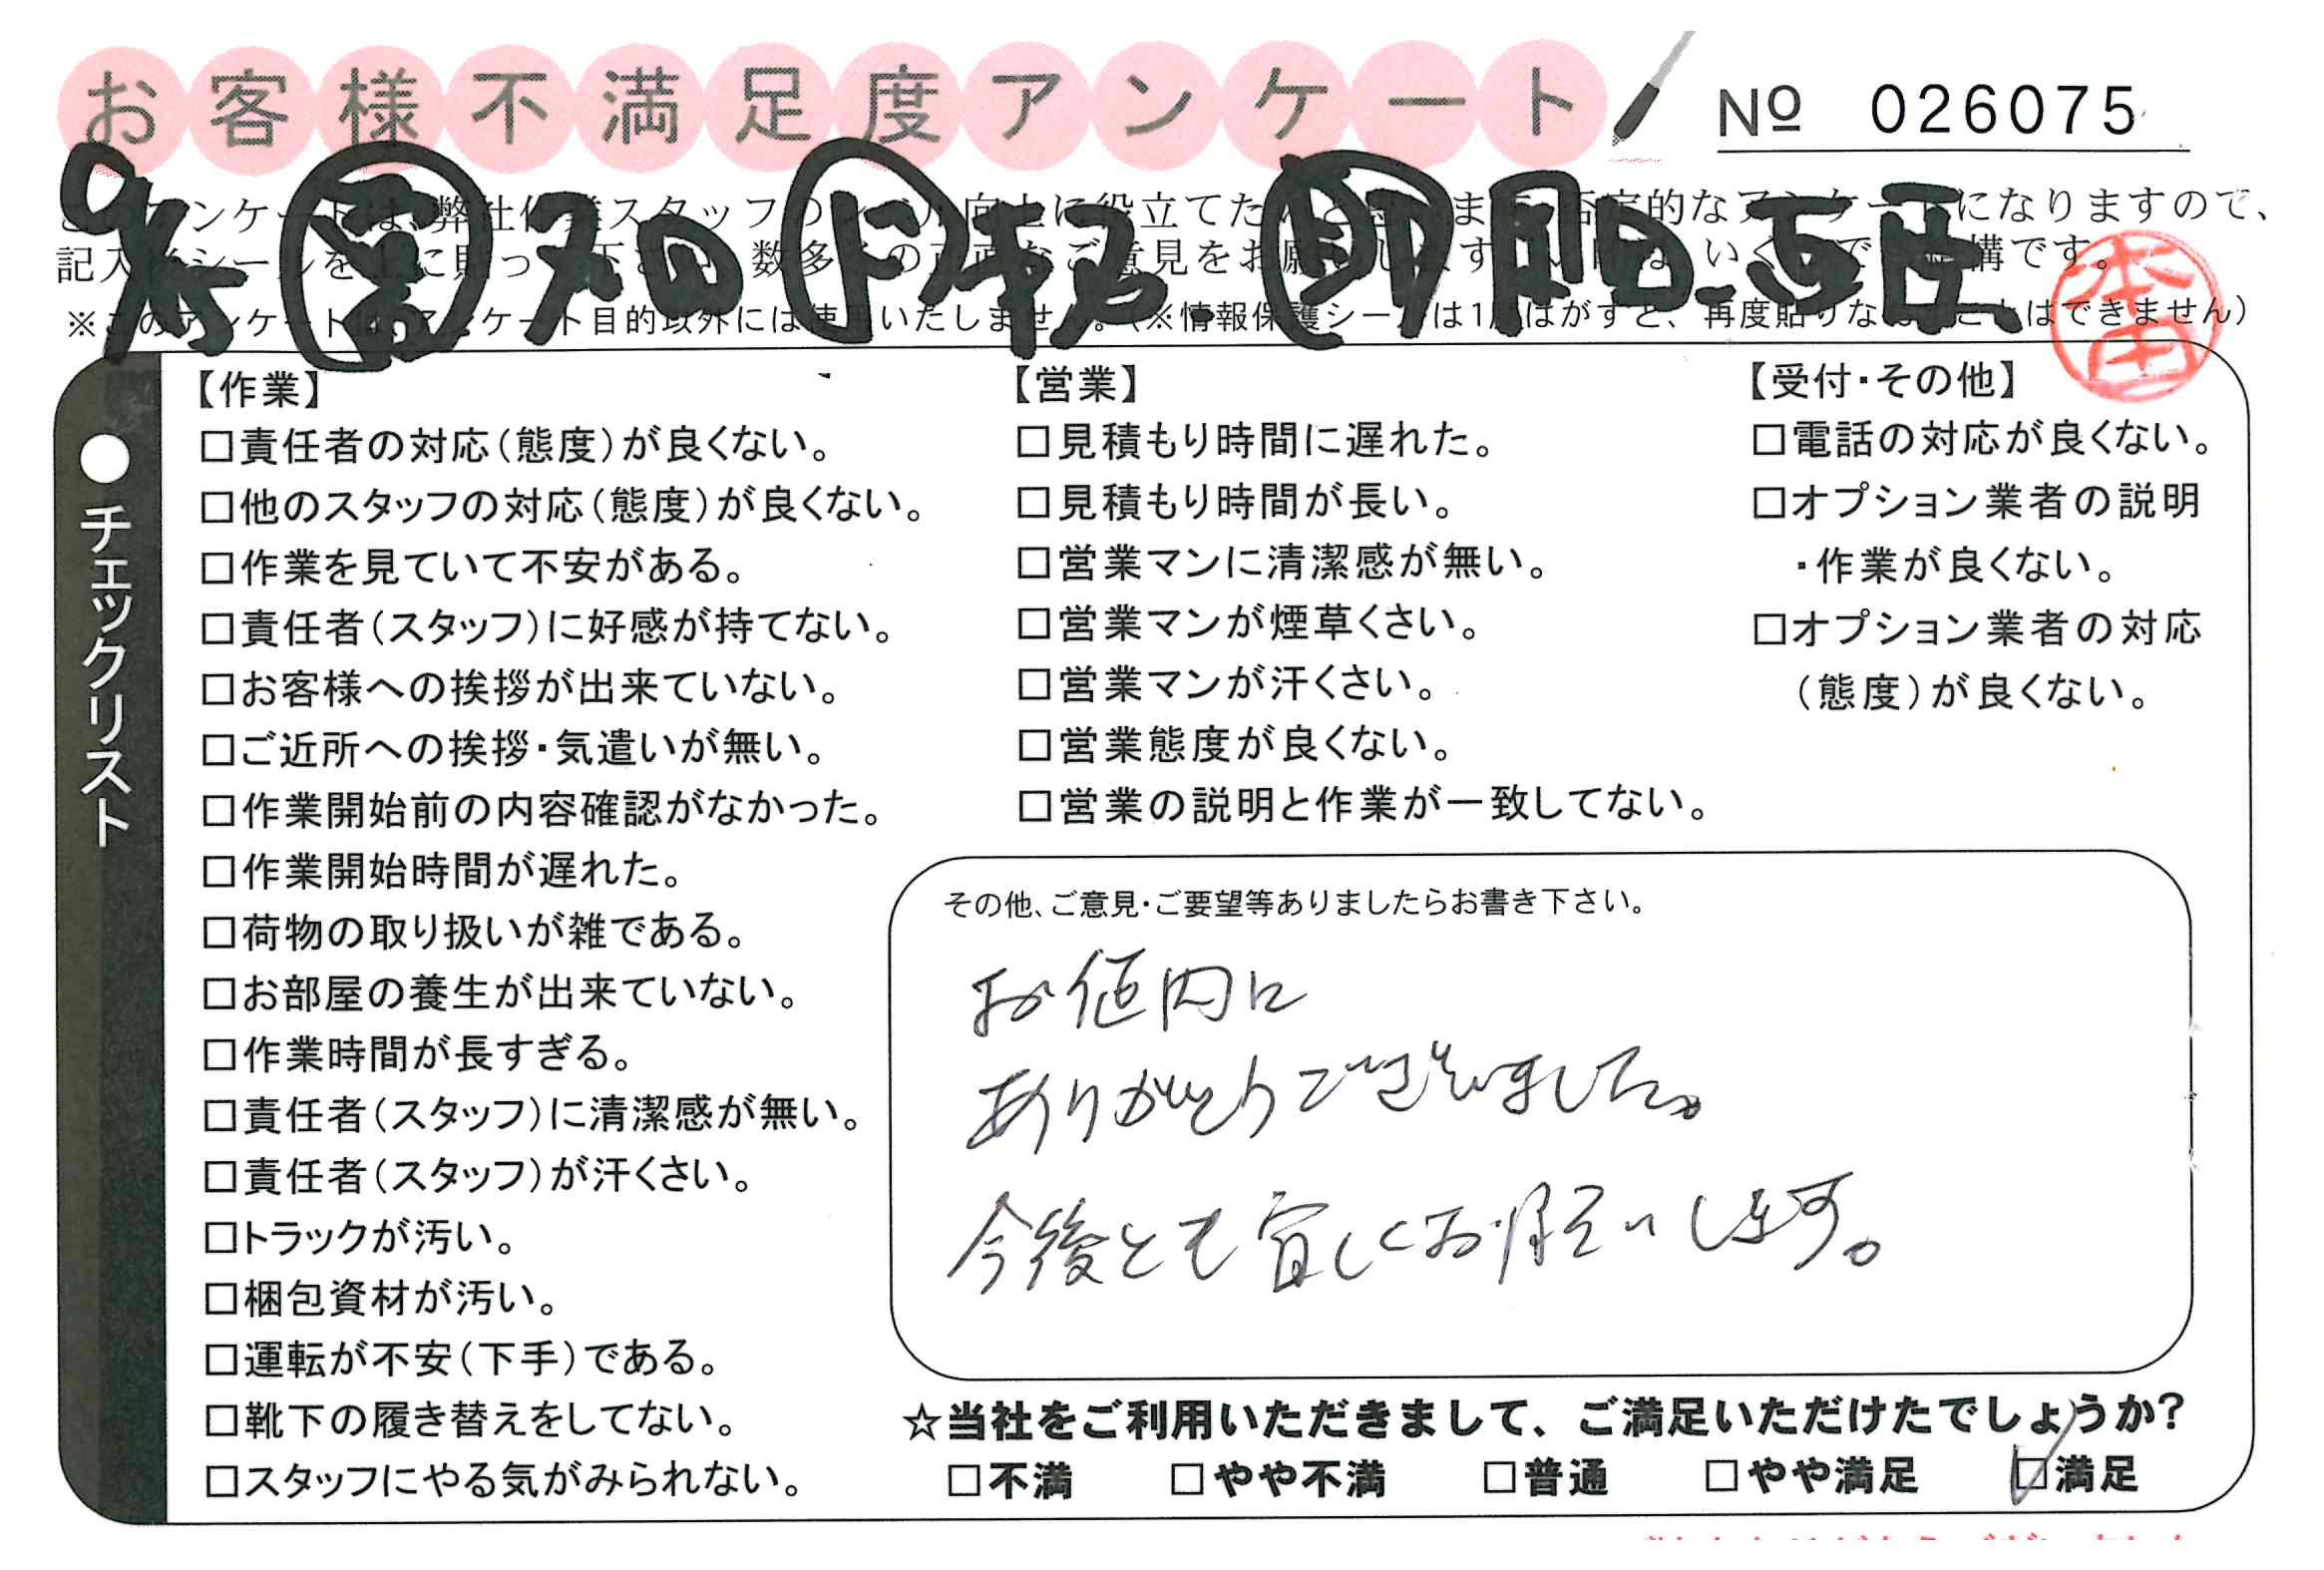 お客様不満足度アンケート
№ 026075
ンケートは、弊社作業スタッフの
向上に役立てた
的なアンケー
になりますので、
記入後シールを上に貼っ
下さ
数多
ご意見をお願
いく
で
構です。
※このアンケートは、アンケート目的以外には使用いたしません。(※情報保護シールは1度はがすと、再度貼りなおすことはできません)
本田
●チェックリスト
【作業】
□責任者の対応(態度)が良くない。
□他のスタッフの対応(態度)が良くない。
□作業を見ていて不安がある。
□責任者(スタッフ)に好感が持てない。
□お客様への挨拶が出来ていない。
□ご近所への挨拶・気遣いが無い。
□作業開始前の内容確認がなかった。
□作業開始時間が遅れた。
□荷物の取り扱いが雑である。
□お部屋の養生が出来ていない。
□作業時間が長すぎる。
□責任者(スタッフ)に清潔感が無い。
□責任者(スタッフ)が汗くさい。
□トラックが汚い。
□梱包資材が汚い。
□運転が不安(下手)である。
□靴下の履き替えをしてない。
□スタッフにやる気がみられない。
【営業】
□見積もり時間に遅れた。
□見積もり時間が長い。
□営業マンに清潔感が無い。
□営業マンが煙草くさい。
□営業マンが汗くさい。
□営業態度が良くない。
□営業の説明と作業が一致してない。
【受付・その他】
□電話の対応が良くない。
□オプション業者の説明
・作業が良くない。
□オプション業者の対応
(態度)が良くない。
その他、ご意見・ご要望等ありましたらお書き下さい。
お値内に
ありがとうございました。
今後とも宜しくお願いします。
☆当社をご利用いただきまして、ご満足いただけたでしょうか?
□不満 □やや不満 □普通 □やや満足 ☑満足